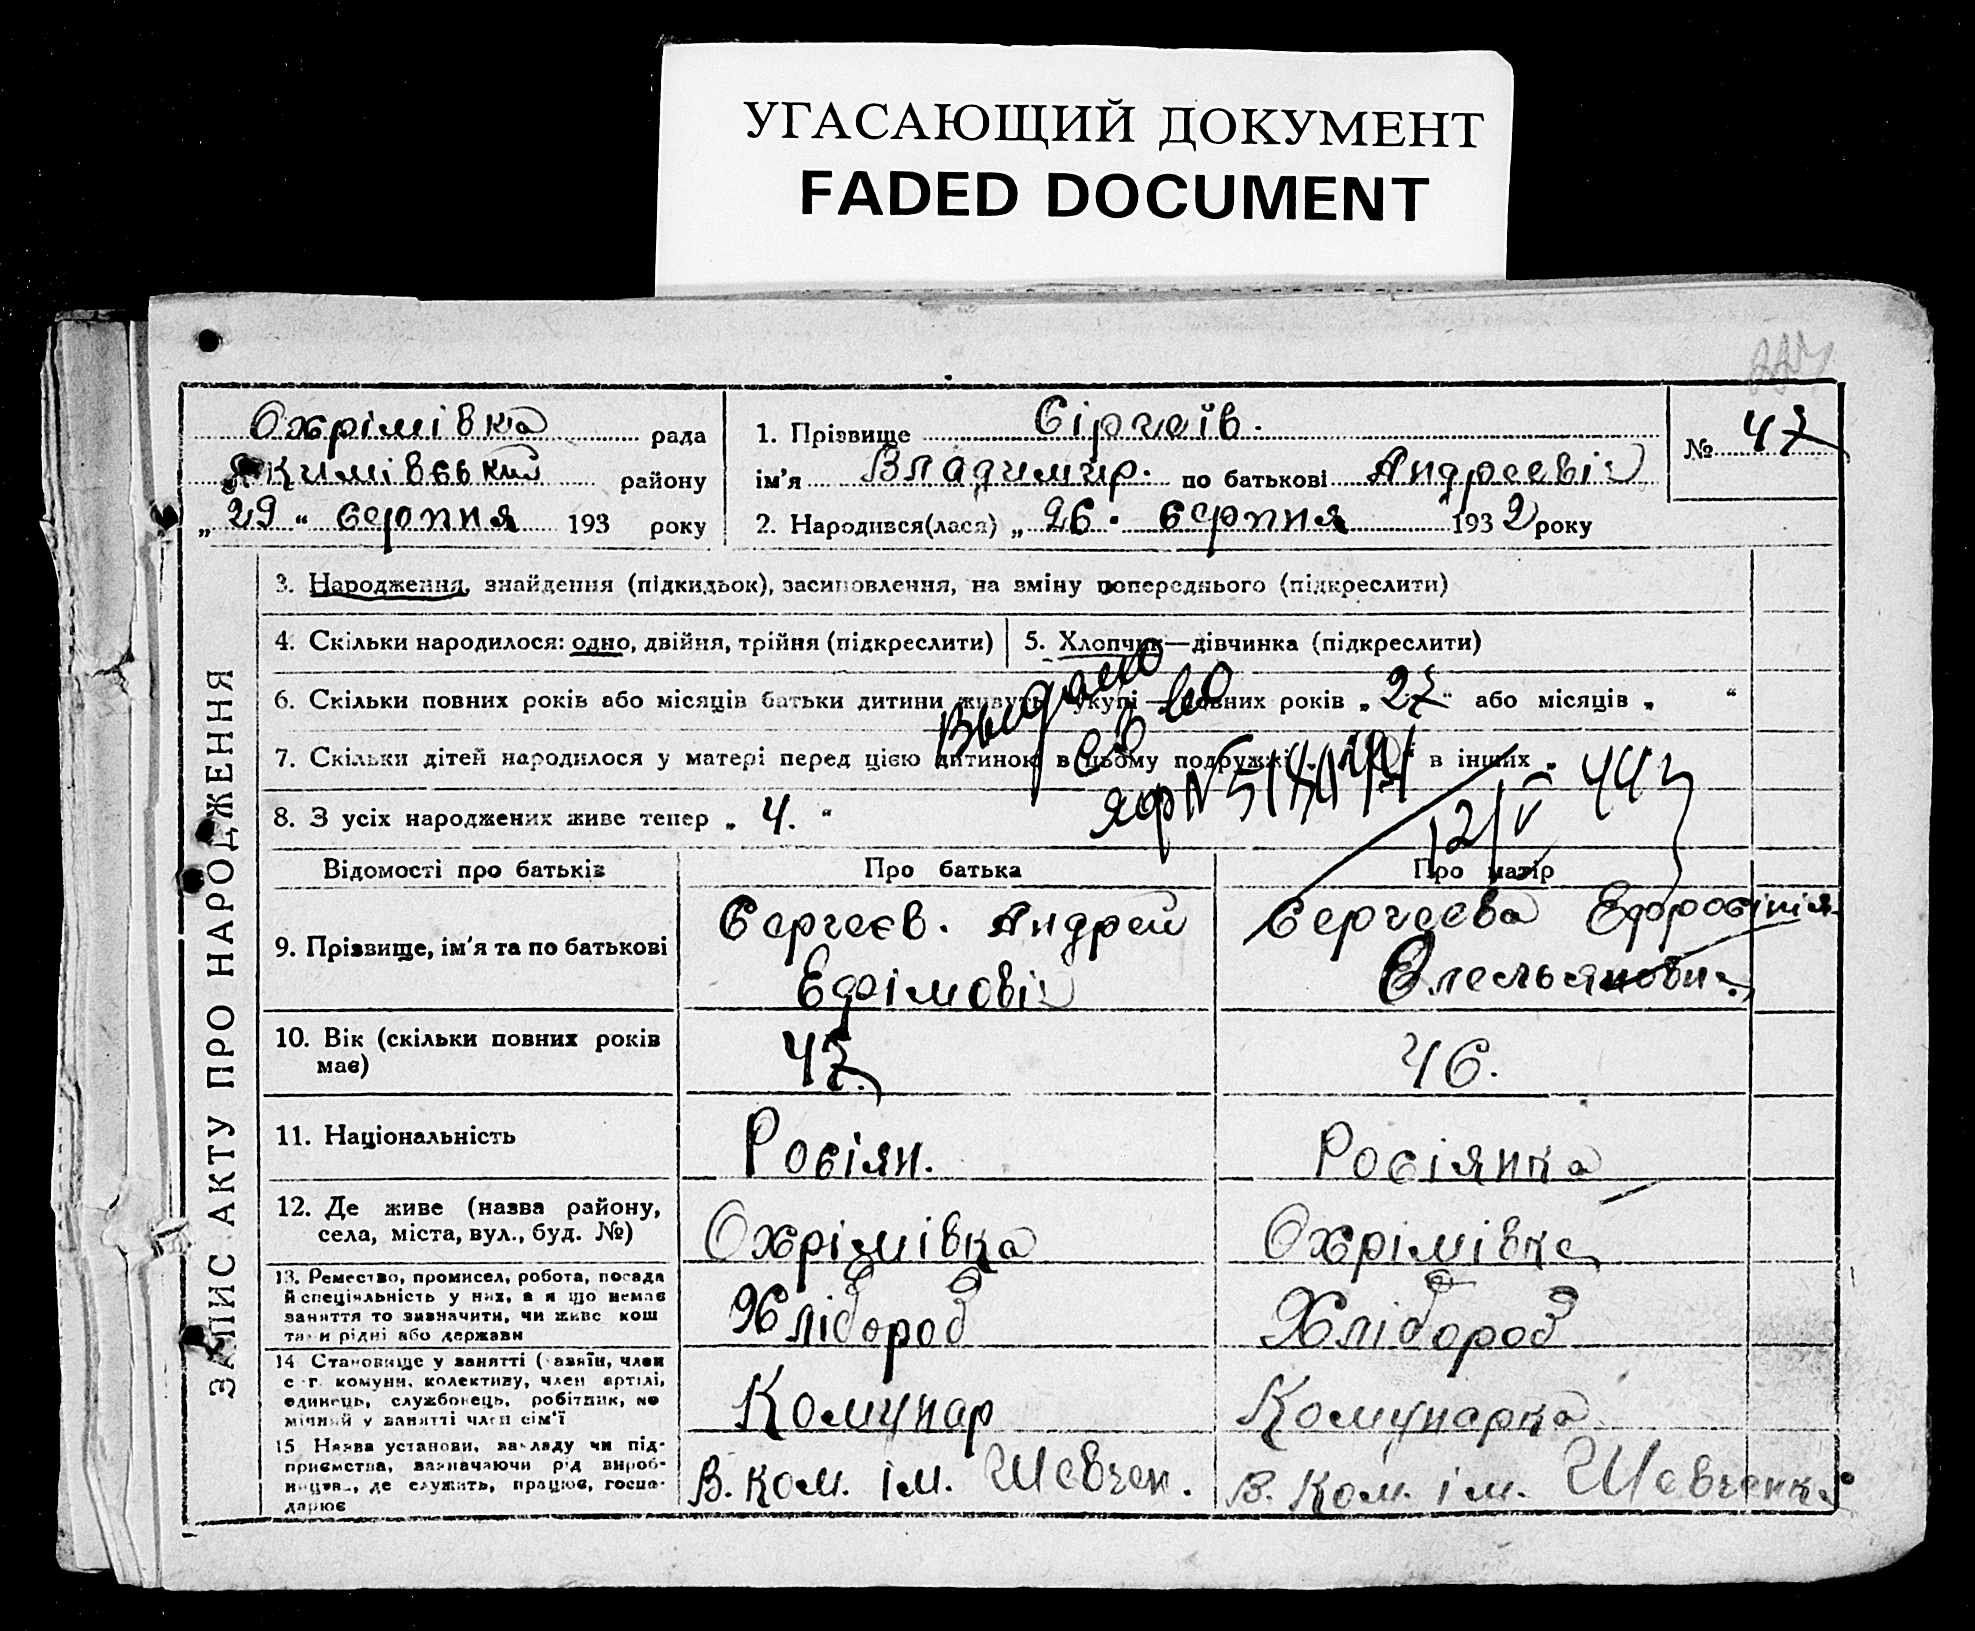 УГАСАЮЩИЙ ДОКУМЕНТ
FADED DOCUMENT
Охрімівка рада
Якимівський району
„ 29 “ серпня 193 року
1. Прізвище Сіргеїв.
ім'я Владимир. по батькові Андреевіч
2. Народився(лася) „ 26. серпня 1932 року
№ 47
ЗАПИС АКТУ ПРО НАРОДЖЕННЯ
3. Народження, знайдення (підкидьок), засиновлення, на зміну попереднього (підкреслити)
4. Скільки народилося: одно, двійня, трійня (підкреслити)
5. Хлопчик—дівчинка (підкреслити)
6. Скільки повних років або місяців батьки дитини живуть укупі — повних років „ 27 “ або місяців „ “
Выдано
св во
7. Скільки дітей народилося у матері перед цією дитиною в цьому подружжі „ в інших „
ЯфN
12/V 44г
8. З усіх народжених живе тепер „ 4. “
Відомості про батьків
Про батька
Про матір
9. Прізвище, ім'я та по батькові
Сергеєв. Андрей
Ефімовіч
Сергеева Ефросінія
Омельяновна
10. Вік (скільки повних років
має)
47.
46.
11. Національність
Росіян.
Росіянка
12. Де живе (назва району,
села, міста, вул., буд. №)
Охрімівка
Охрімівка
13. Ремество, промисел, робота, посада
й спеціяльність у них, а якщо немає
заняття то зазначити, чи живе кош
тами рідні або держави
Хлібороб
Хлібороб
14 Становище у занятті (хазяїн, член
с.-г. комуни, колективу, член артілі,
одинець, службовець, робітник, по
мічний у занятті член сім'ї
Комунар
Комунарка
15 Назва установи, закладу чи під-
приємства, зазначаючи рід вироб-
ництва, де служить, працює, госпо-
дарює
В. ком. ім. Шевчен.
В. Ком. ім. Шевченка